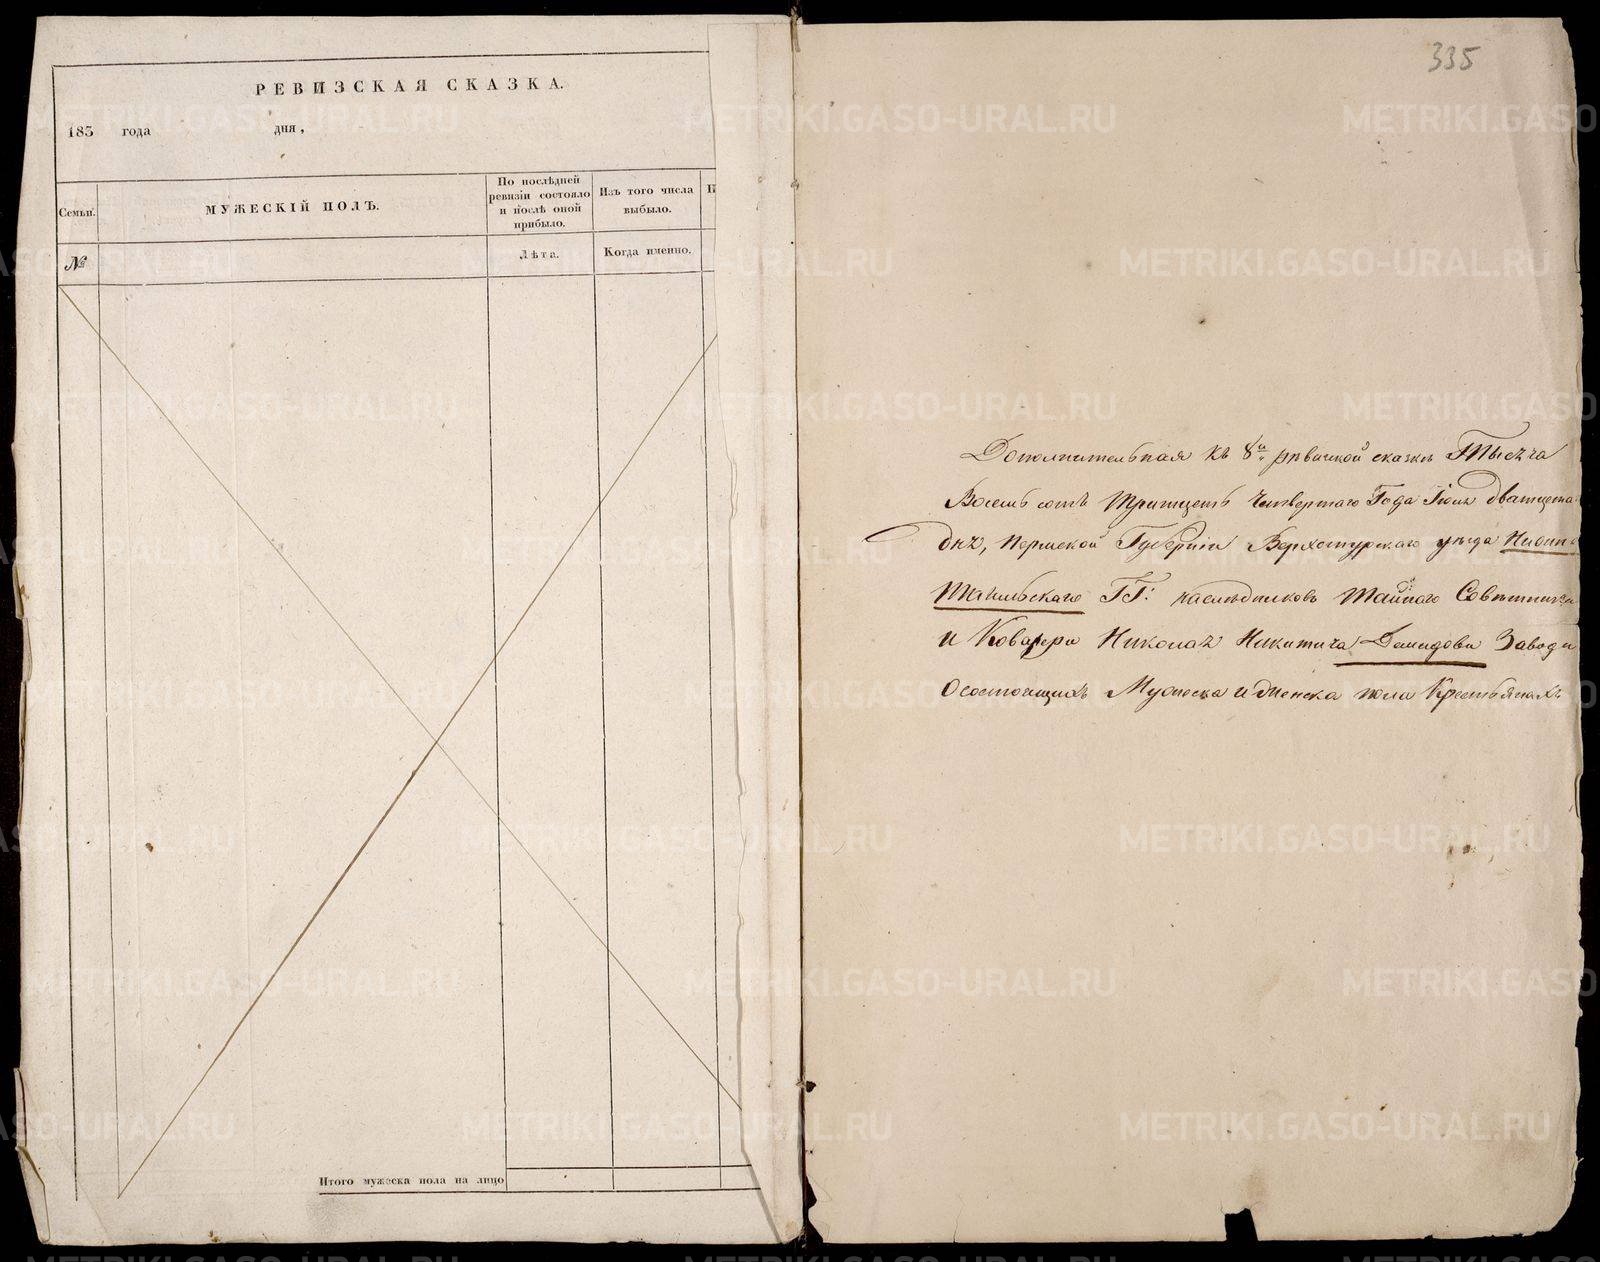 РЕВИЗСКАЯ СКАЗКА.
185 года дня,
Семьи.
МУЖЕСКІЙ ПОЛЪ.
По послѣдней ревизіи состояло и послѣ оной прибыло.
Изъ того числа выбыло.
№
Лѣта.
Когда именно.
Итого мужеска пола на лицо
335
Дополнительная къ 8й ревиской сказкѣ Тысяча
Восемь сотъ тритцеть четвертаго Года Іюля дватцета
дня, Пермской Губерніи Верхотурскаго уѣзда Нижне
Тагильскаго ГГ: наслѣдниковъ Тайнаго Совѣтника
и Ковалера Николая Никитича Демидова Завода
О состоящихъ Мужеска и женска пола Крестьянахъ
METRIKI.GASO-URAL.RU